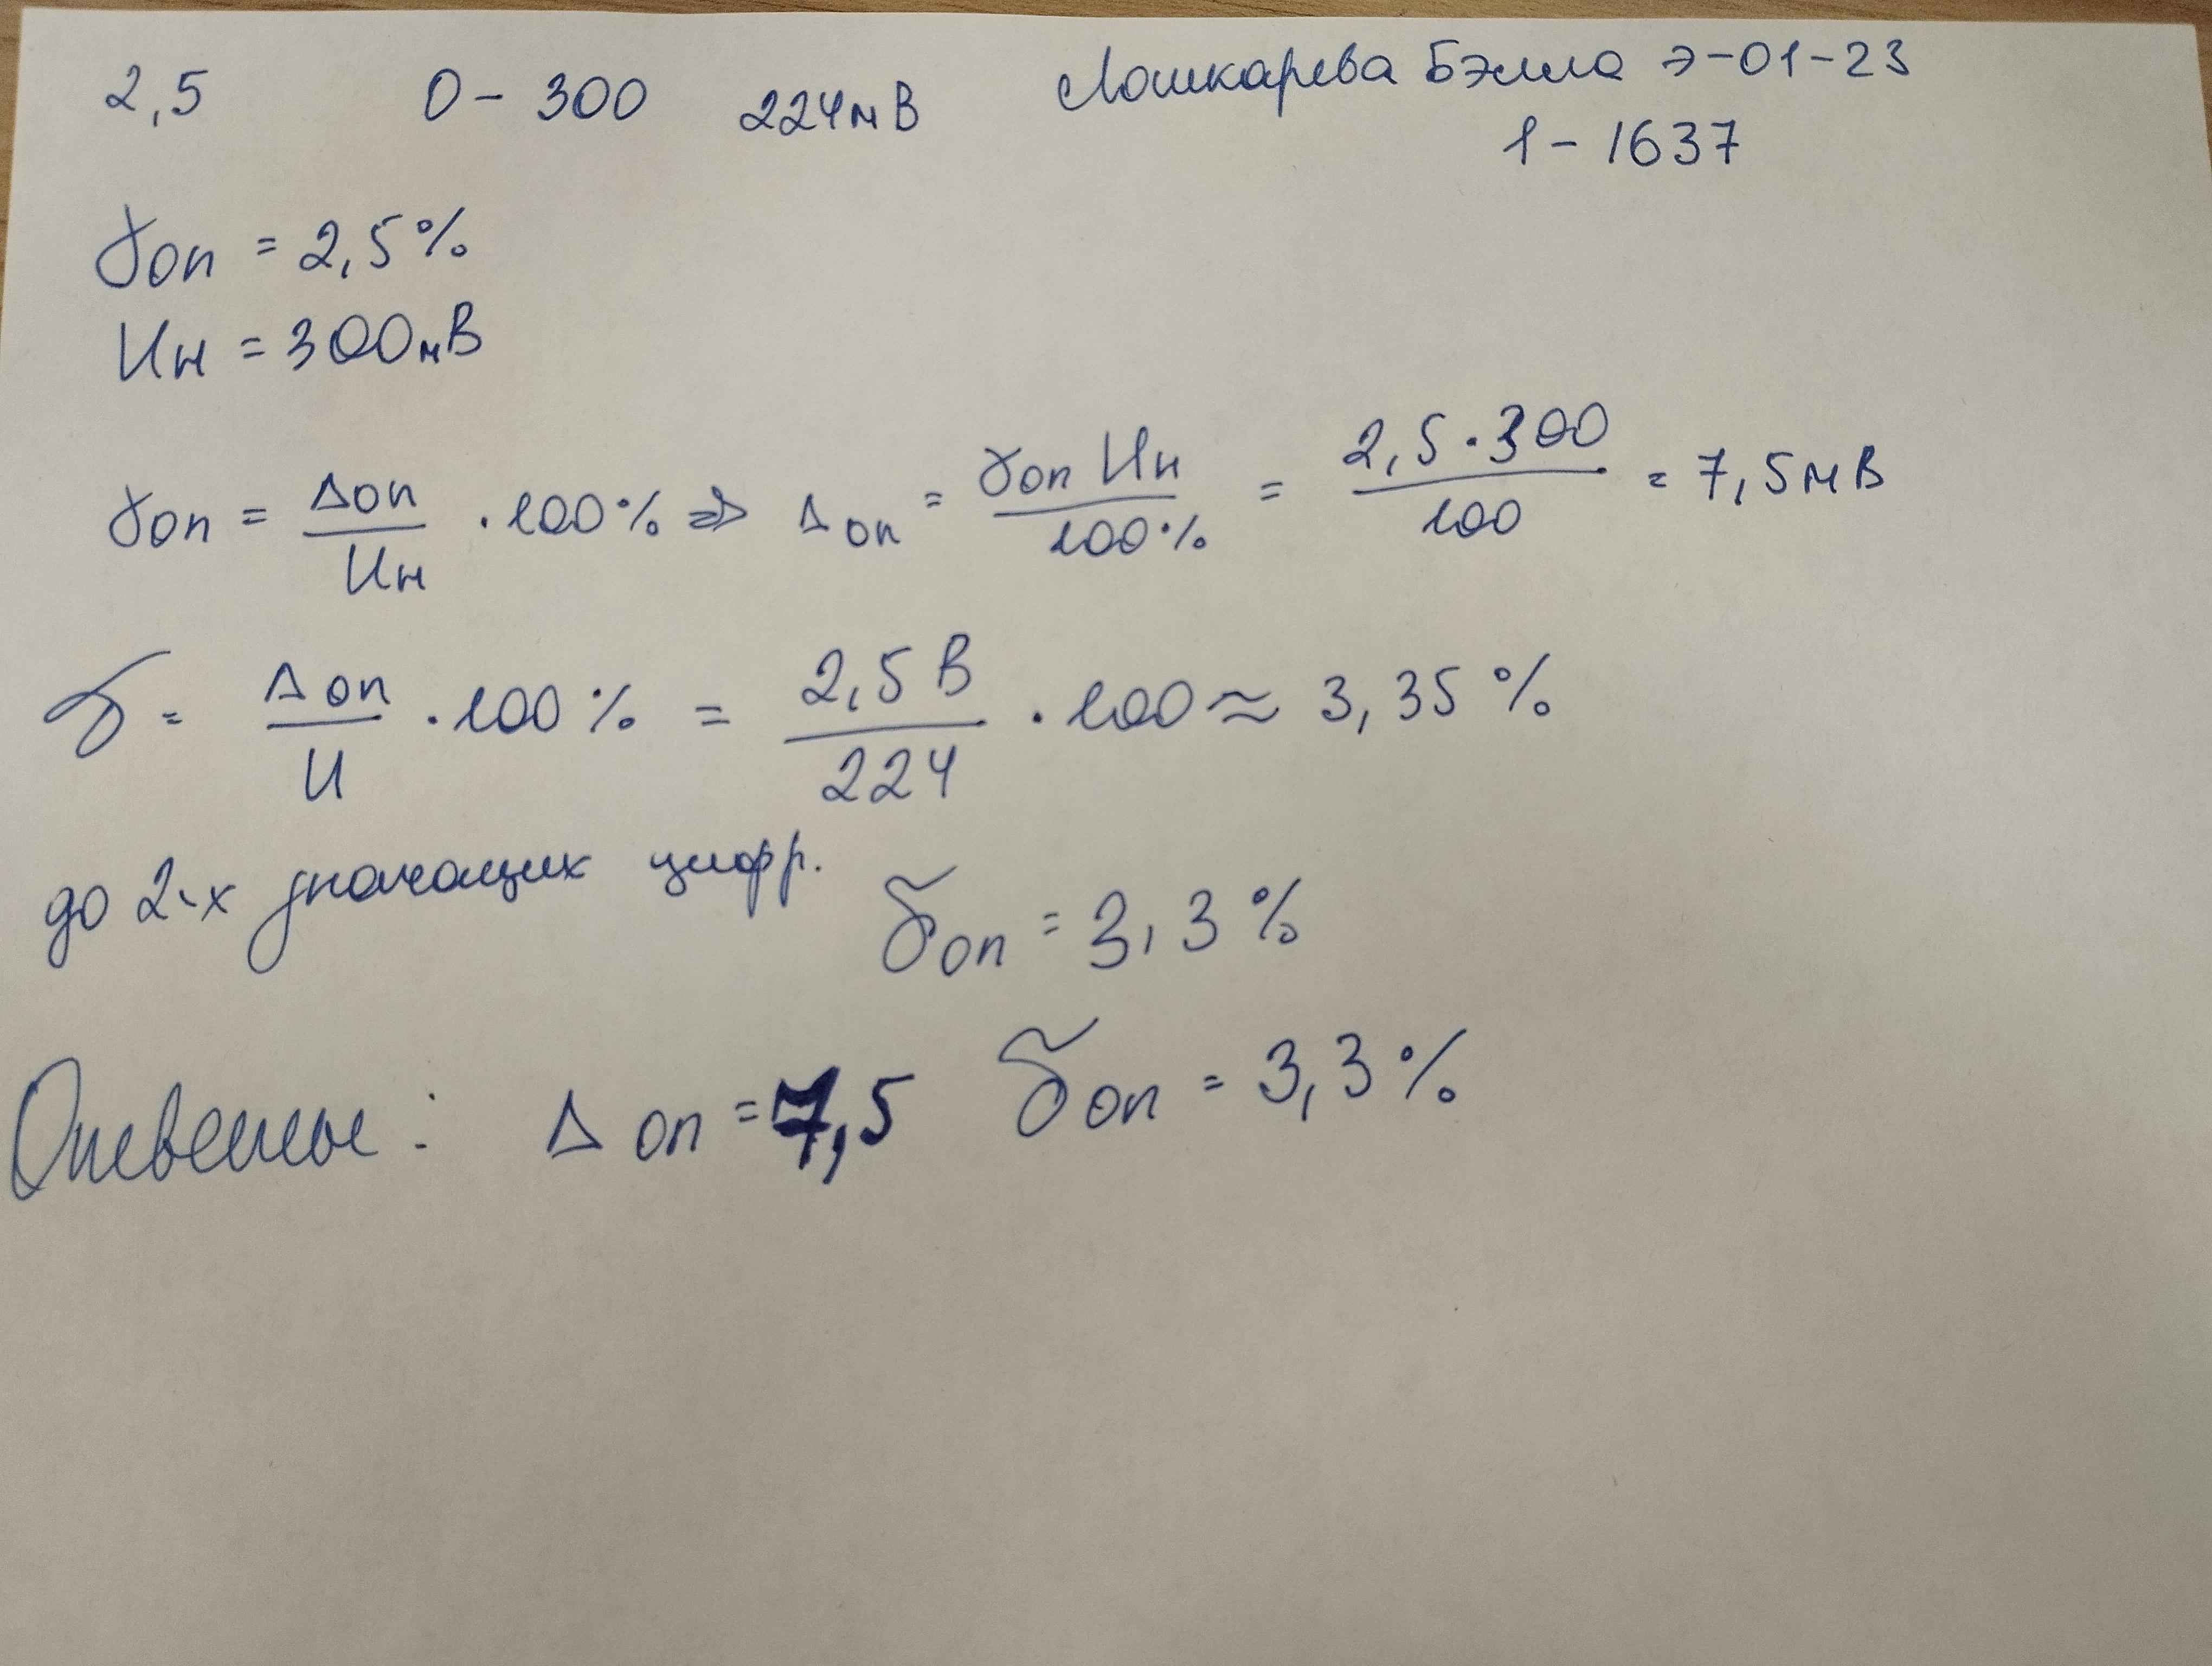 2,5 0 - 300 224мВ Лошкарева Бэлла Э-01-23
1 - 1637
γоп = 2,5%
Uн = 300мВ
γоп = Δоп / Uн · 100% => Δоп = γоп Uн / 100% = 2,5 · 300 / 100 = 7,5мВ
δ = Δоп / U · 100% = 2,5 В / 224 · 100 ≈ 3,35 %
до 2-х значащих цифр. δоп = 3,3%
Ответы: Δоп = 7,5 δоп = 3,3%